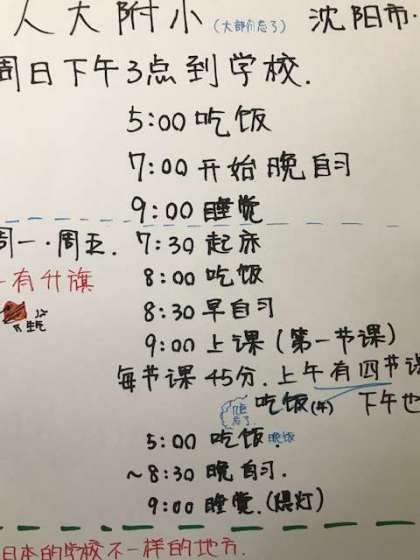 人大附小(大部分忘了) 沈阳市.
周日下午3点到学校.
5:00 吃饭
7:00 开始晚自习
9:00 睡觉
周一.周五. 7:30 起床
一有升旗
8:00 吃饭
8:30 早自习
9:00 上课(第一节课)
每节课45分.上午有四节课
吃饭(午) 下午也
忘了
5:00 吃饭 晚饭
~8:30 晚自习.
9:00 睡觉.(熄灯)
日本的学校不一样的地方.